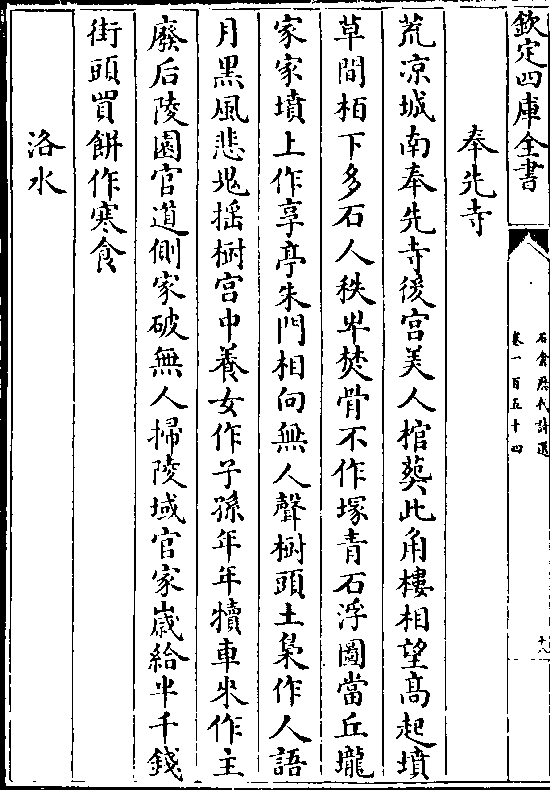 欽定四庫全書
石倉歷代詩選
卷一百五十四
十八
奉先寺
荒凉城南奉先寺後宫美人棺葬此角樓相望高起墳
草間栢下多石人秩卑焚骨不作塚青石浮圖當丘壠
家家墳上作享亭朱門相向無人聲樹頭土梟作人語
月黒風悲鬼揺樹宫中養女作子孫年年犢車来作主
廢后陵園官道側家破無人掃陵域官家嵗給半千錢
街頭買餅作寒食
洛水